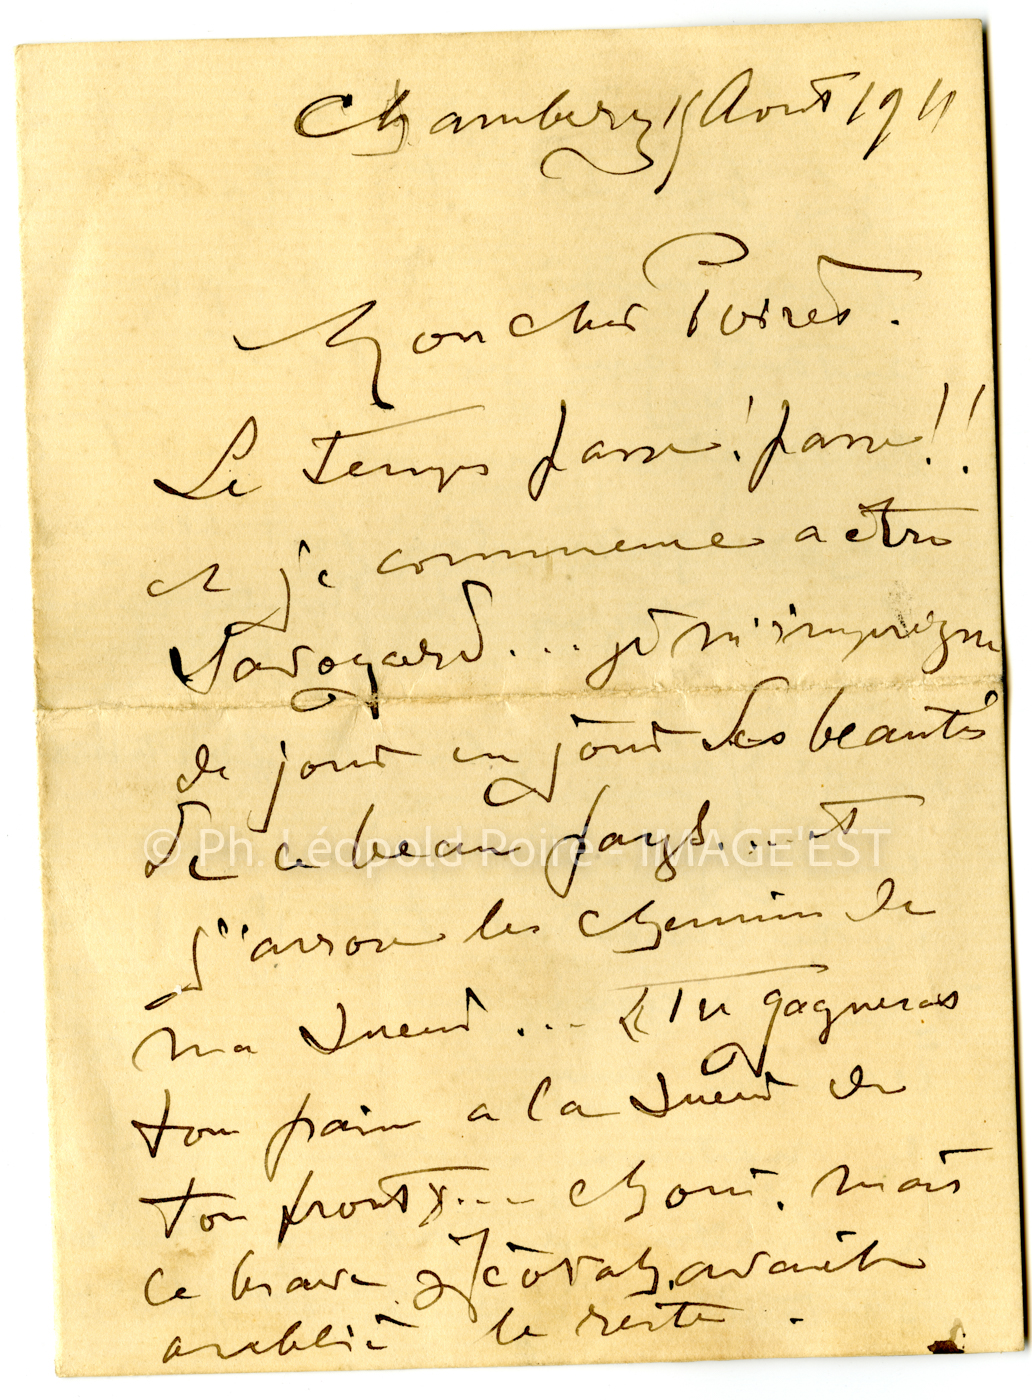 Chambery 15 Aout 1911
Mon cher Poiret.
Le temps passe! passe!!
et je commence a etre
Savoyard... je m'imprègne
de jour en jour des beautés
de ce beau pays... et
j'arrose les chemins de
ma sueur... « Tu gagneras
ton pain a la sueur de
ton front »...., mais
ce brave Jéovah avait
oublié le reste.
© Ph. Léopold Poiré - IMAGE'EST